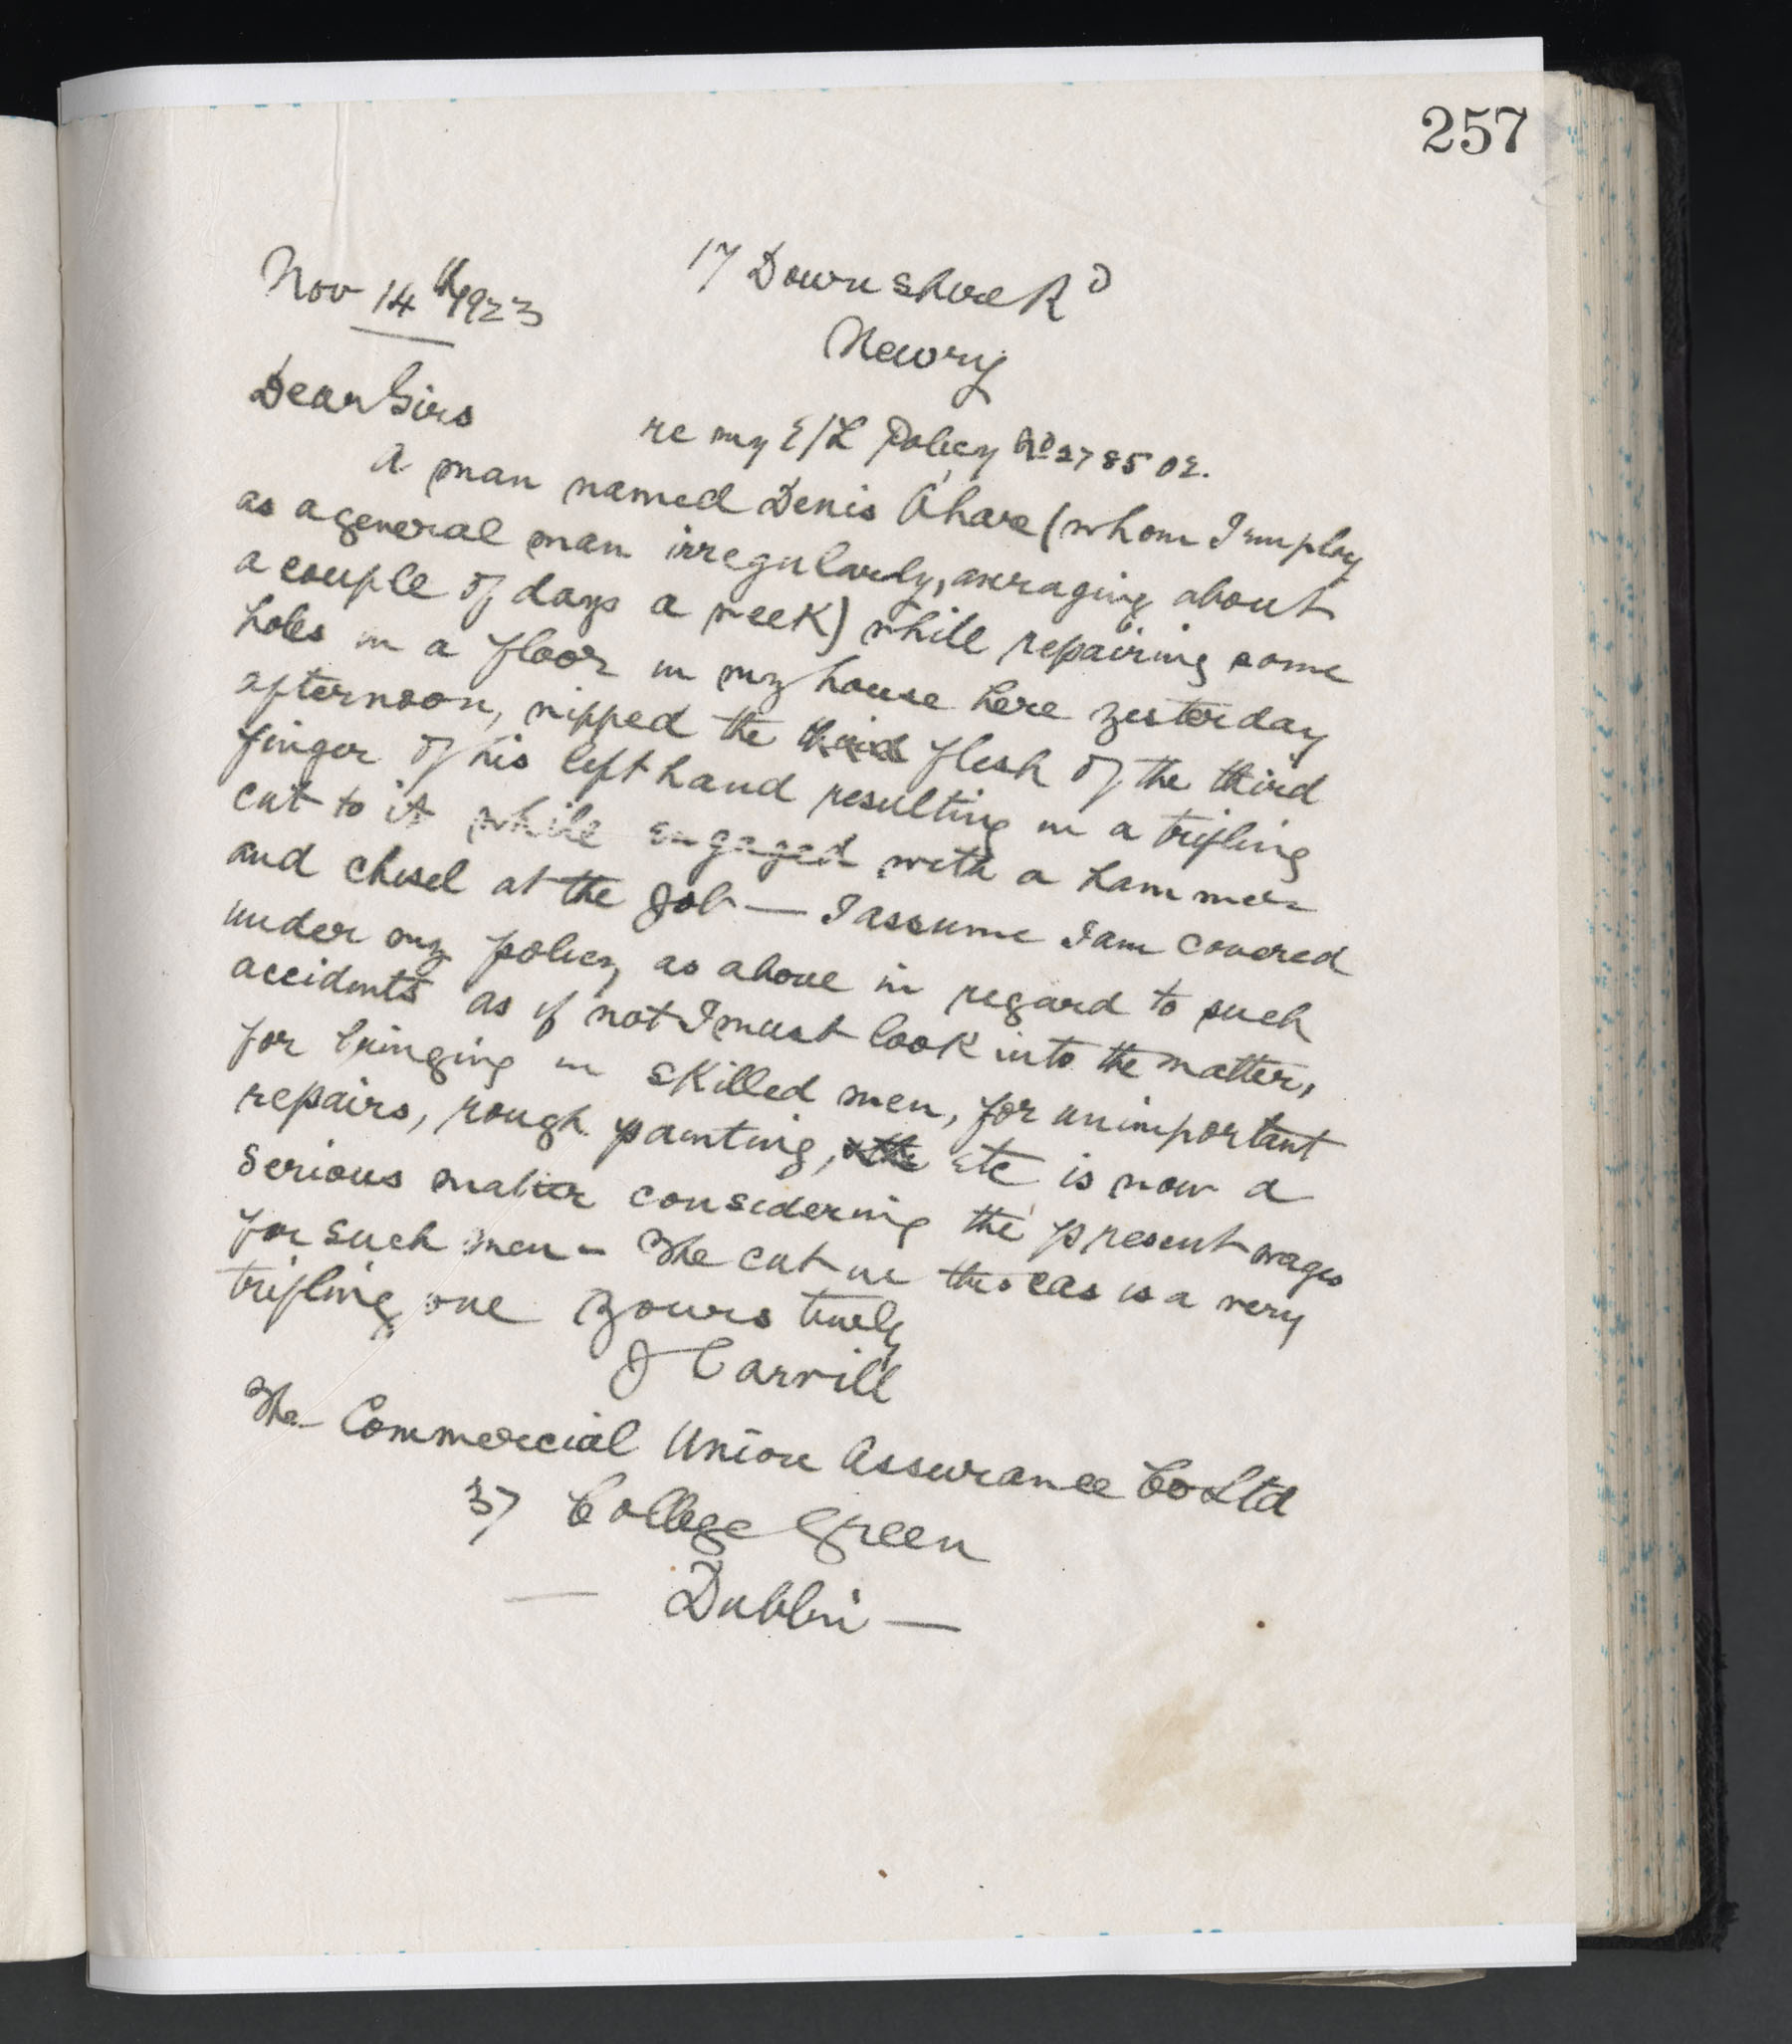 257
Nov 14th 1923
17 Downshire Rd
Newry
Dear Sirs
re my E/L Policy No 278502.
A man named Denis OHare (whom I employ
as a general man irregularly, averaging about
a couple of days a week) while repairing some
holes in a floor in my house here yesterday
afternoon, nipped the third flesh of the third
finger of his left hand resulting in a trifling
cut to it while engaged with a hammer
and chisel at the job — I assume I am covered
under my policy as above in regard to such
accidents as if not I must look into the matter,
for bringing in skilled men, for unimportant
repairs, rough painting, etc is now a
serious matter considering the present wages
for such men - The cut in this cas is a very
trifling one Yours truly
J Carvill
The Commercial Union Assurance Co Ltd
37 College Green
— Dublin —